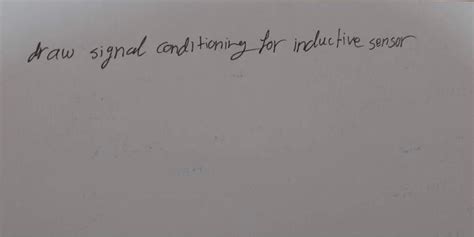 draw signal conditioning for inductive sensor